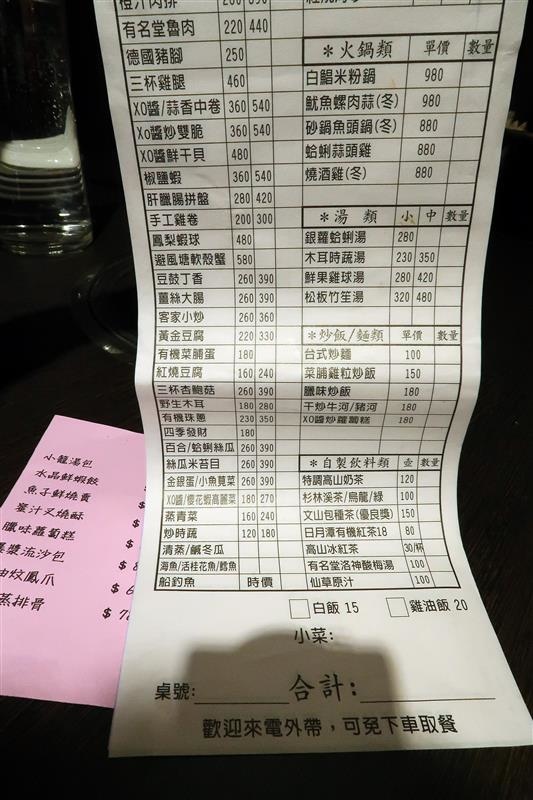 橙汁肉排 260 390
有名堂魯肉 220 440
德國豬腳 250
三杯雞腿 460
XO醬/蒜香中卷 360 540
Xo醬炒雙脆 360 540
XO醬鮮干貝 480
椒鹽蝦 360 540
肝臘腸拼盤 280 420
手工雞卷 200 300
鳳梨蝦球 480
避風塘軟殼蟹 580
豆鼓丁香 260 390
薑絲大腸 260 390
客家小炒 260 360
黃金豆腐 220 330
有機菜脯蛋 180
紅燒豆腐 160 240
三杯杏鮑菇 260 390
野生木耳 180 280
有機珠蔥 230 350
四季發財 180
百合/蛤蜊絲瓜 260 390
絲瓜米苔目 260 390
金銀蛋/小魚莧菜 260 390
XO醬/櫻花蝦高麗菜 180 270
蒸青菜 160 240
炒時蔬 120 180
清蒸/鹹冬瓜
海魚/活桂花魚/鱈魚
船釣魚 時價
*火鍋類 單價 數量
白鯧米粉鍋 980
魷魚螺肉蒜(冬) 980
砂鍋魚頭鍋(冬) 880
蛤蜊蒜頭雞 880
燒酒雞(冬) 880
*湯 類 小 中 數量
銀蘿蛤蜊湯 280
木耳時蔬湯 230 350
鮮果雞球湯 280 420
松板竹笙湯 320 480
*炒飯/麵類 單價 數量
台式炒麵 100
菜脯雞粒炒飯 150
臘味炒飯 180
干炒牛河/豬河 180
XO醬炒蘿蔔糕 180
*自製飲料類 壺 數量
特調高山奶茶 120
杉林溪茶/烏龍/綠 100
文山包種茶(優良獎) 150
日月潭有機紅茶18 80
高山冰紅茶 30/杯
有名堂洛神酸梅湯 100
仙草原汁 100
白飯 15 雞油飯 20
小菜:
桌號: 合計:
歡迎來電外帶,可免下車取餐
小籠湯包
水晶鮮蝦餃
魚子鮮燒賣
蜜汁叉燒酥
臘味蘿蔔糕
流沙包
鳳爪
蒸排骨